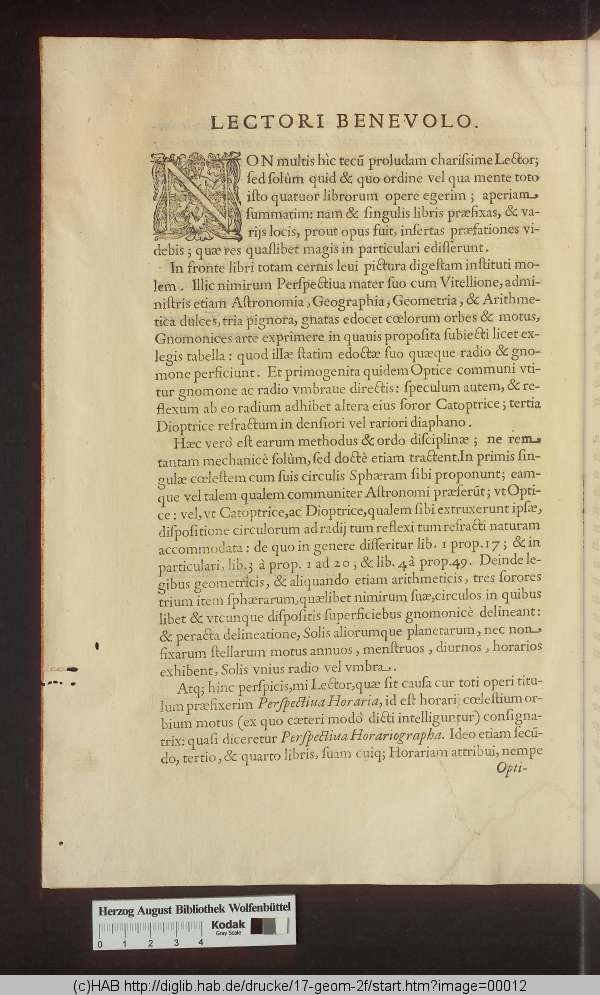 LECTORI BENEVOLO.
NON multis hìc tecũ proludam chariſsime Lector;
ſed ſolùm quid & quo ordine vel qua mente toto
iſto quatuor librorum opere egerim; aperiam
ſummatim: nam & ſingulis libris præfixas, & va-
rijs locis, prout opus fuit, inſertas præfationes vi-
debis; quæ res quaſlibet magis in particulari ediſſerunt.
In fronte libri totam cernis leui pictura digeſtam inſtituti mo-
lem. Illic nimirum Perſpectiua mater ſuo cum Vitellione, admi-
niſtris etiam Aſtronomia, Geographia, Geometria, & Arithme-
tica dulces, tria pignora, gnatas edocet cœlorum orbes & motus,
Gnomonices arte exprimere in quauis propoſita ſubiecti licet ex-
legis tabella: quod illæ ſtatim edoctæ ſuo quæque radio & gno-
mone perficiunt. Et primogenita quidem Optice communi vti-
tur gnomone ac radio vmbraue directis: ſpeculum autem, & re-
flexum ab eo radium adhibet altera eius ſoror Catoptrice; tertia
Dioptrice refractum in denſiori vel rariori diaphano.
Hæc verò eſt earum methodus & ordo diſciplinæ; ne rem
tantam mechanicè ſolùm, ſed doctè etiam tractent. In primis ſin-
gulæ cœleſtem cum ſuis circulis Sphæram ſibi proponunt; eam-
que vel talem qualem communiter Aſtronomi præſerũt; vt Opti-
ce: vel, vt Catoptrice, ac Dioptrice, qualem ſibi extruxerunt ipſæ,
diſpoſitione circulorum ad radij tum reflexi tum refracti naturam
accommodata: de quo in genere differitur lib. 1 prop. 17; & in
particulari, lib. 3 à prop. 1 ad 20; & lib. 4 à prop. 49. Deinde le-
gibus geometricis, & aliquando etiam arithmeticis, tres ſorores
trium item ſphærarum, quælibet nimirum ſuæ, circulos in quibus
libet & vtcunque diſpoſitis ſuperficiebus gnomonicè delineant:
& peracta delineatione, Solis aliorumque planetarum, nec non
fixarum ſtellarum motus annuos, menſtruos, diurnos, horarios
exhibent, Solis vnius radio vel vmbra.
Atq; hinc perſpicis, mi Lector, quæ ſit cauſa cur toti operi titu-
lum præfixerim Perſpectiua Horaria, id eſt horarij cœleſtium or-
bium motus (ex quo cæteri modò dicti intelliguntur) conſigna-
trix: quaſi diceretur Perſpectiua Horariographa. Ideo etiam ſecũ-
do, tertio, & quarto libris, ſuam cuiq; Horariam attribui, nempe
Opti-
Herzog August Bibliothek Wolfenbüttel
0 1 2 3 4
Kodak
Gray Scale
(c)HAB http://diglib.hab.de/drucke/17-geom-2f/start.htm?image=00012